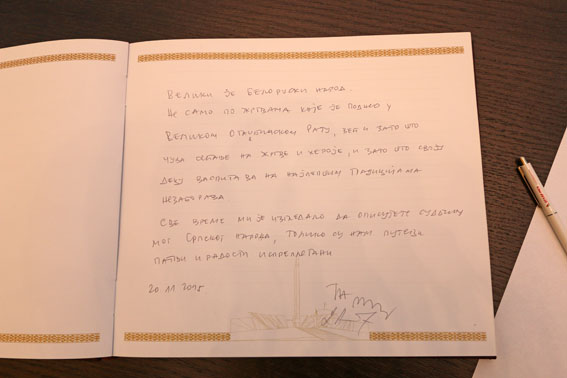 Велики је белоруски народ.
Не само по жртвама које је поднео у
Великом отаџбинском рату, већ и зато што
чува сећање на жртве и хероје, и зато што своју
децу васпитава на најлепшим традицијама
незаборава.
Све време ми је изгледало да описујете судбину
мог српског народа, толико су нам путеви
патњи и радости испреплетани
20.11.2015